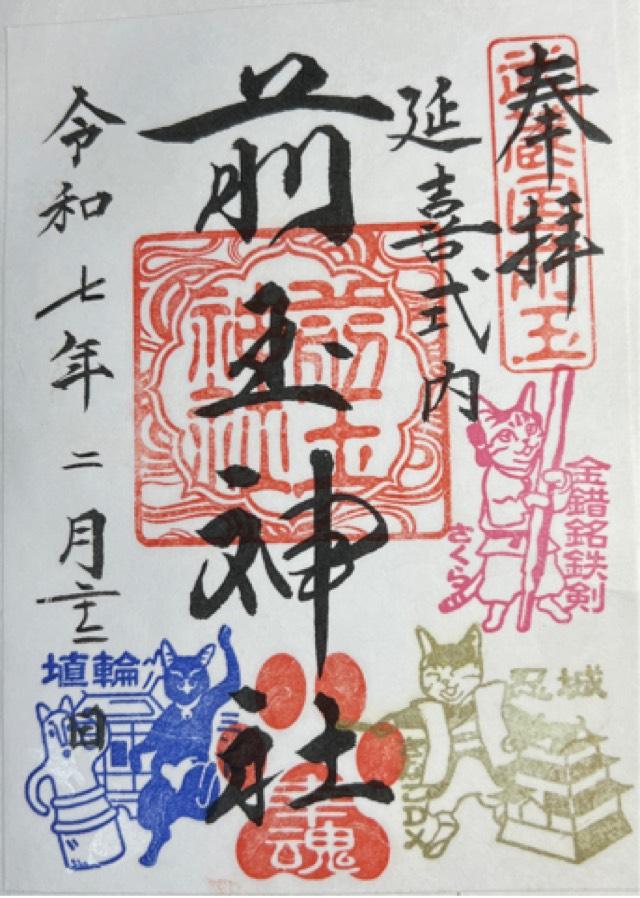 奉拝
武蔵国前玉
延喜式内
前玉神社
前玉
神社
令和七年二月二十二日
金錯銘鉄剣
さくら
忍城
埴輪
幸魂